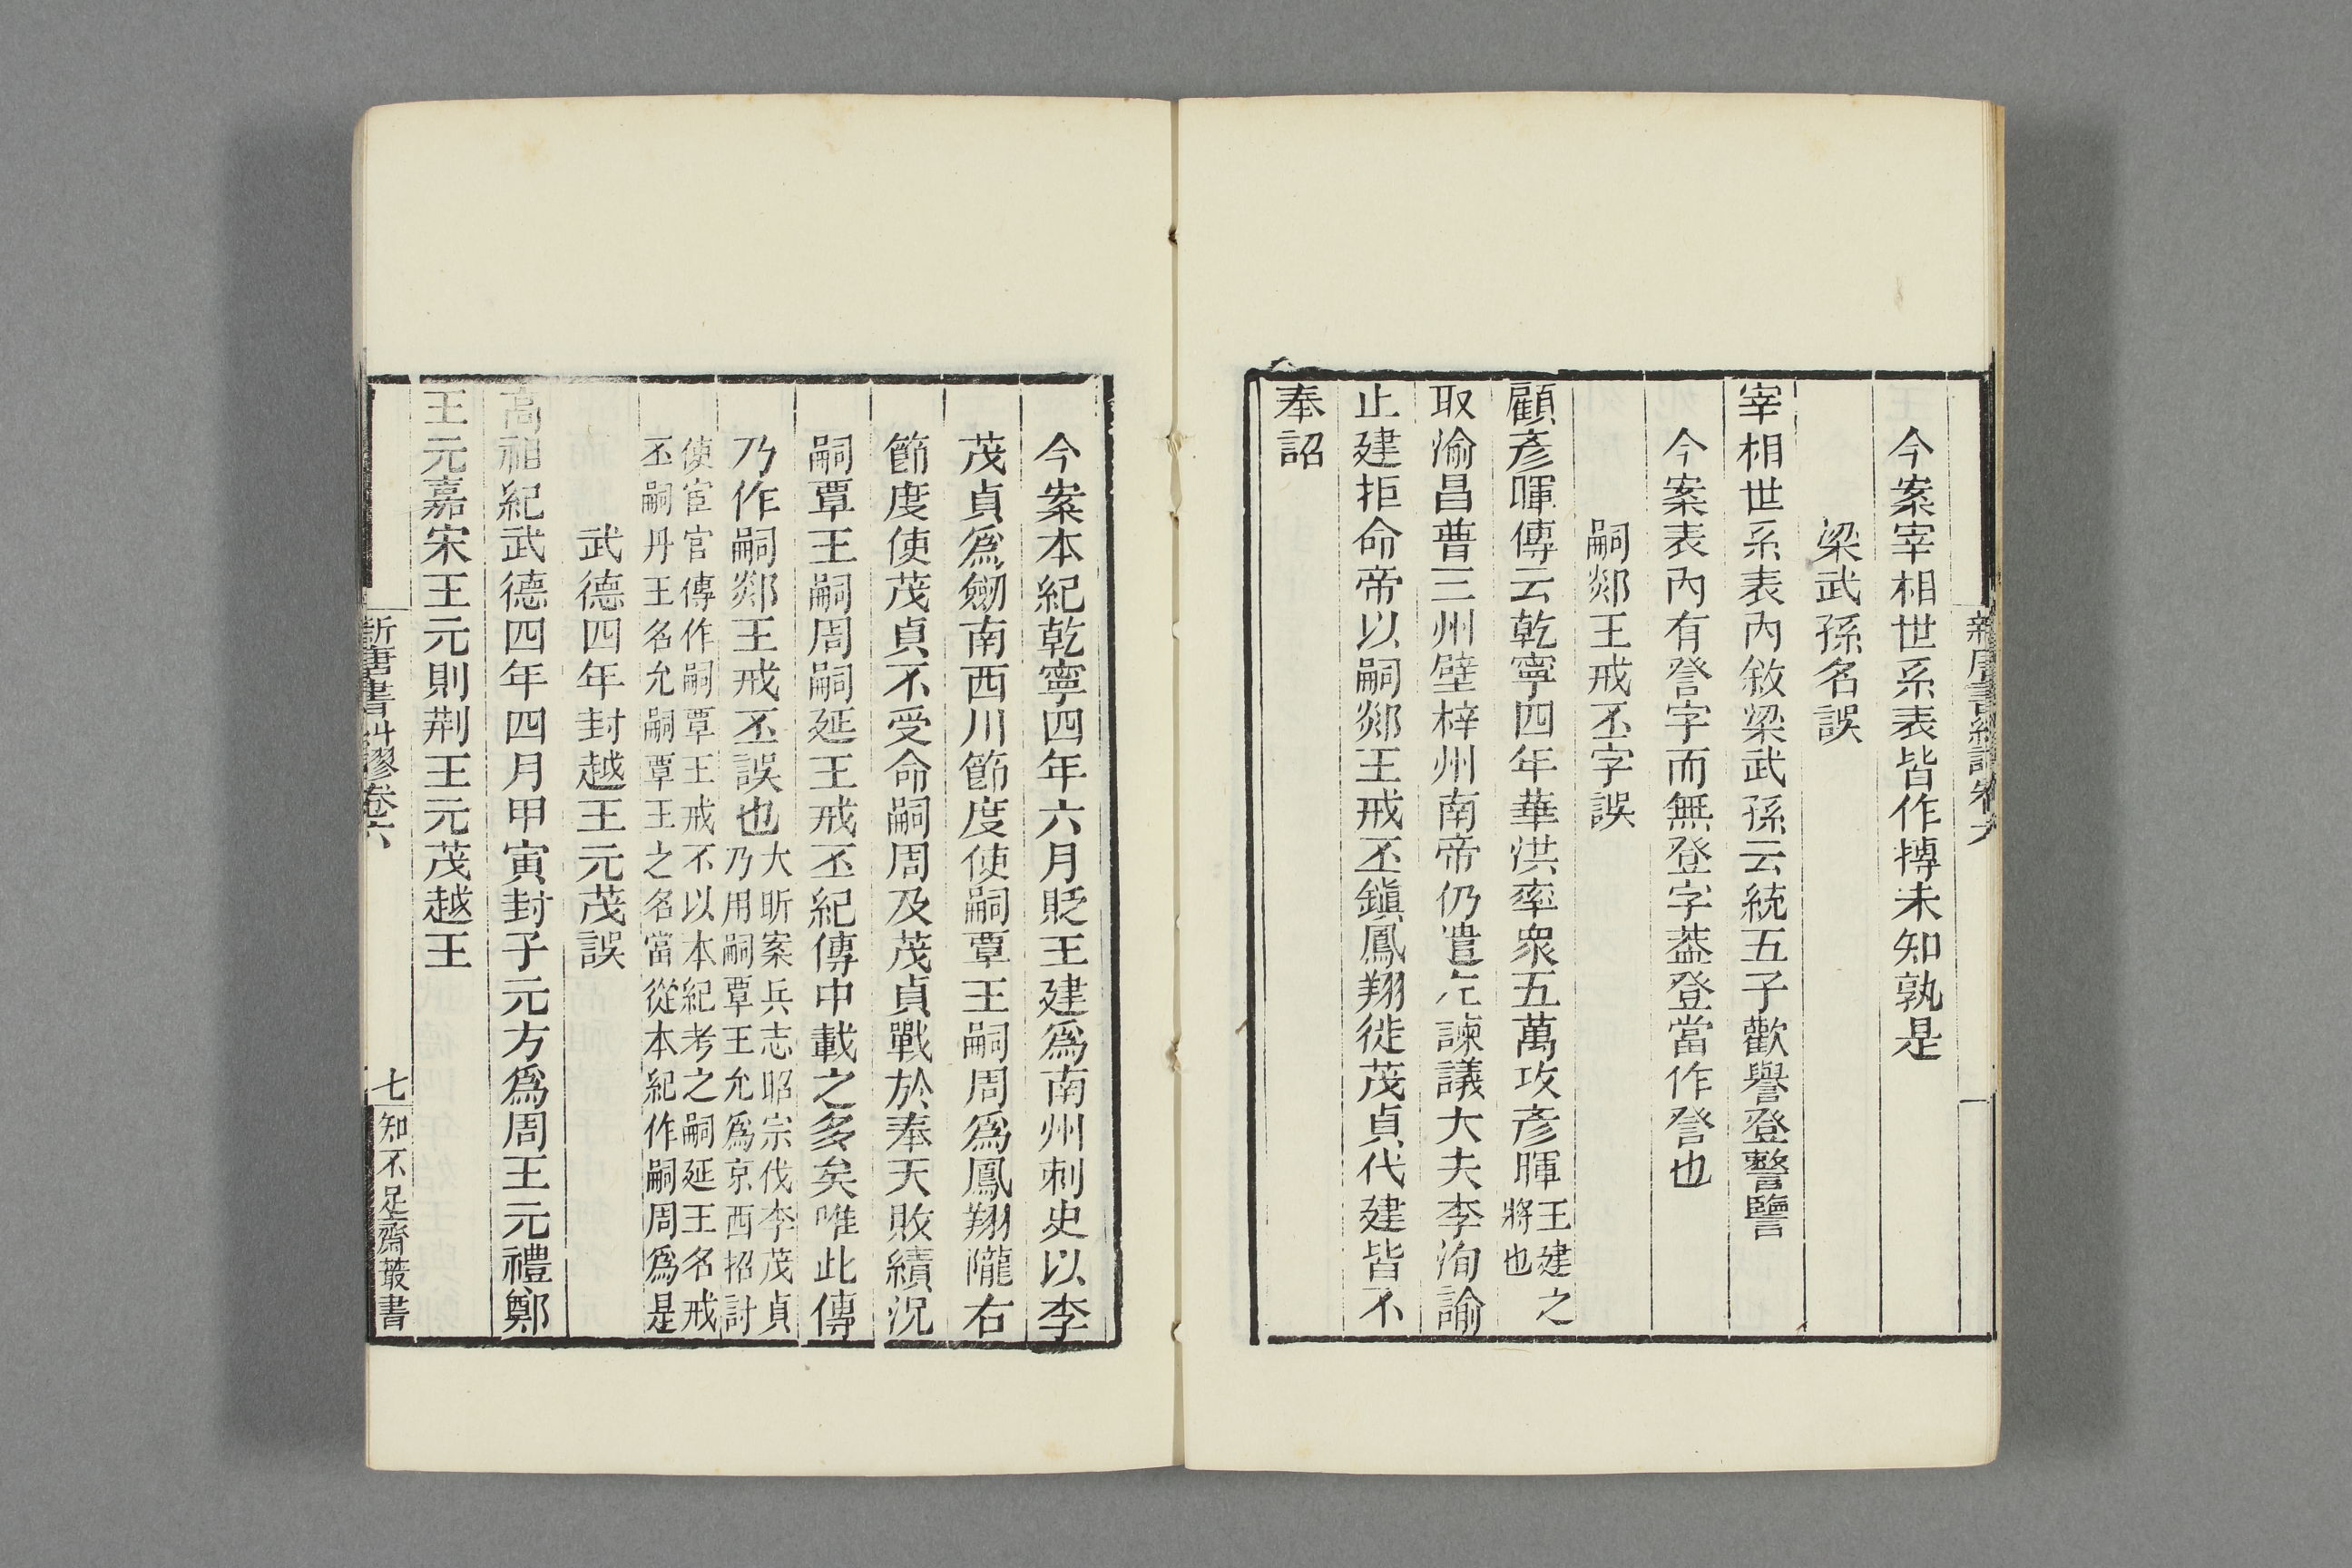 今案宰相世系表皆作摶未知孰是
梁武孫名誤
宰相世系表內敘梁武孫云統五子歡譽登詧譼
今案表內有詧字而無登字葢登當作詧也
嗣郯王戒丕字誤
顧彥暉傳云乾寧四年華洪率衆五萬攻彥暉王建之將也
取渝昌普三州壁梓州南帝仍遣左諫議大夫李洵諭
止建拒命帝以嗣郯王戒丕鎭鳳翔徙茂貞代建皆不
奉詔
今案本紀乾寧四年六月貶王建爲南州刺史以李
茂貞爲劒南西川節度使嗣覃王嗣周爲鳳翔隴右
節度使茂貞不受命嗣周及茂貞戰於奉天敗績況
嗣覃王嗣周嗣延王戒丕紀傳中載之多矣唯此傳
乃作嗣郯王戒丕誤也大昕案兵志昭宗伐李茂貞乃用嗣覃王允爲京西招討
使宦官傳作嗣覃王戒不以本紀考之嗣延王名戒
丕嗣丹王名允嗣覃王之名當從本紀作嗣周爲是
武德四年封越王元茂誤
高祖紀武德四年四月甲寅封子元方爲周王元禮鄭
王元嘉宋王元則荆王元茂越王
新唐書糾繆卷六
七
知不足齋叢書